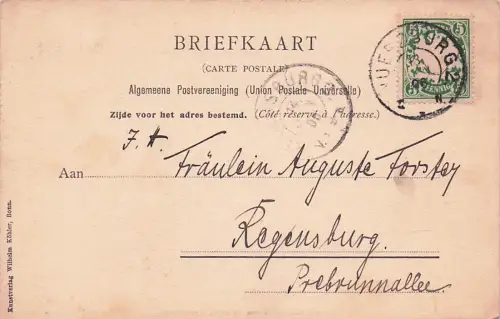 BRIEFKAART
(CARTE POSTALE)
Algemeene Postvereeniging (Union Postale Universelle)
Zijde voor het adres bestemd. (Côté réservé à l'adresse.)
Fräulein Auguste Forster
Aan
Regensburg.
Prebrunnallee.
Kunstverlag Wilhelm Köhler, Bonn.
5